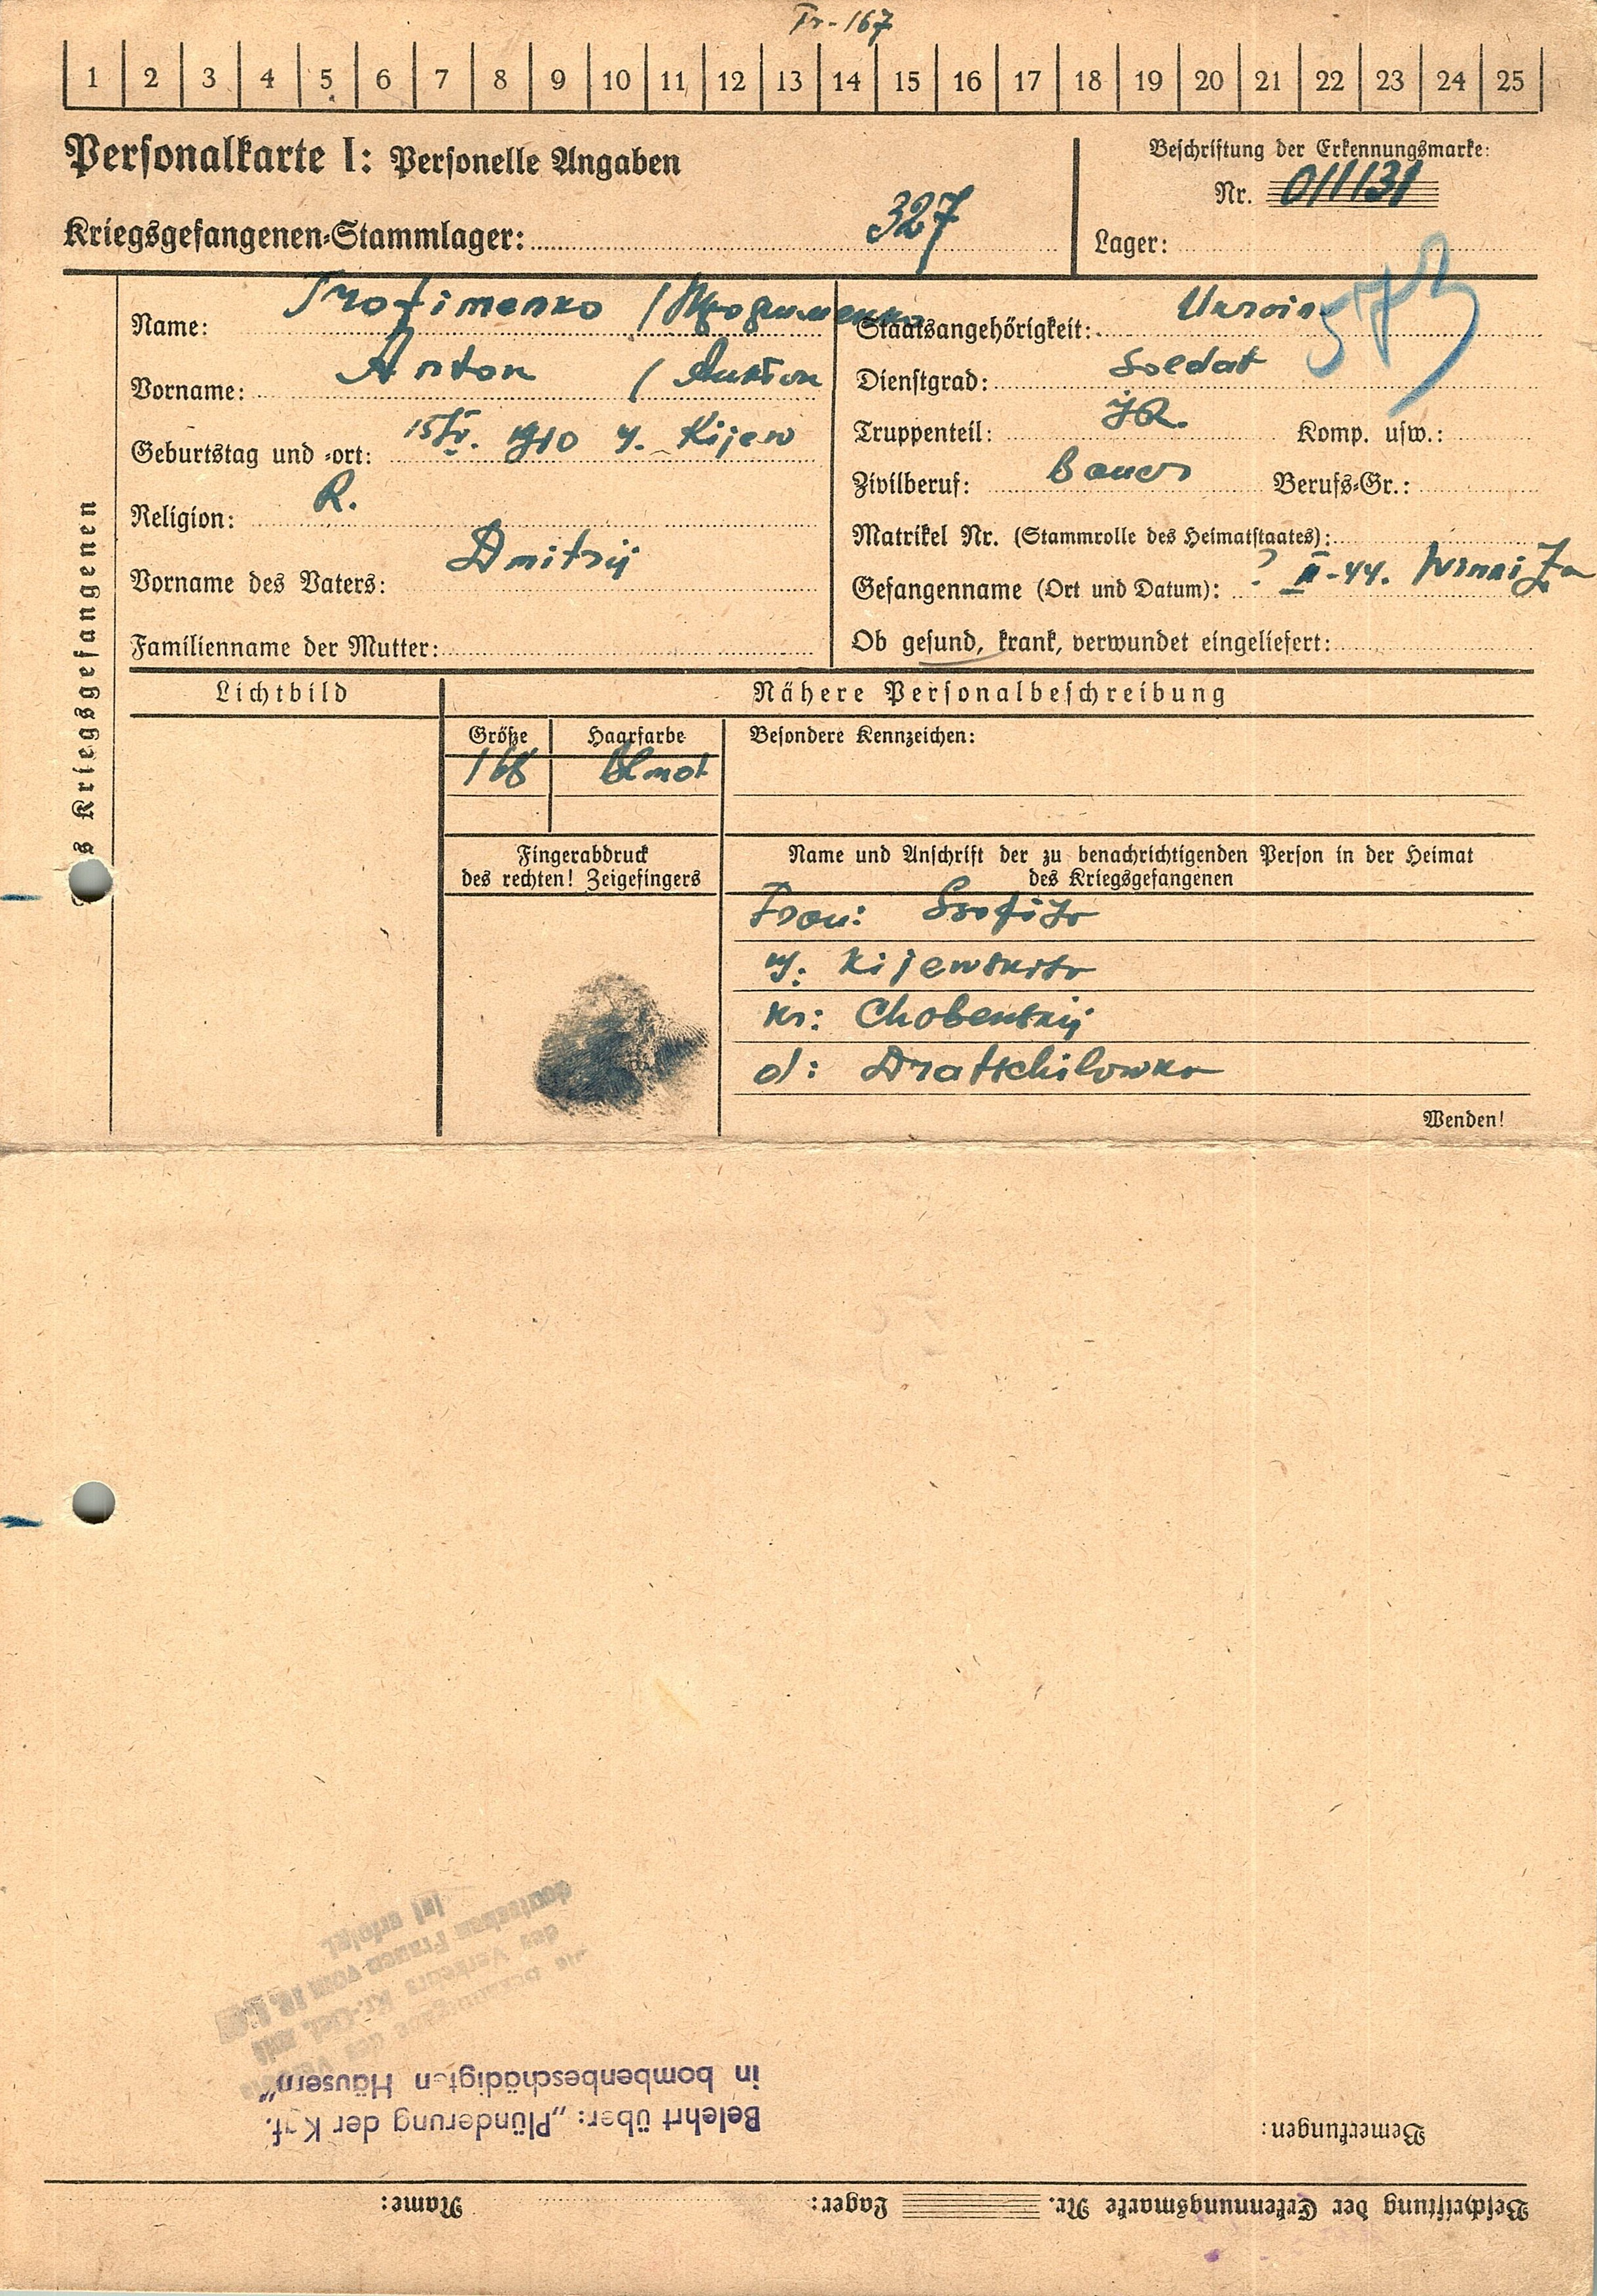 Tr-167
1 2 3 4 5 6 7 8 9 10 11 12 13 14 15 16 17 18 19 20 21 22 23 24 25
Personalkarte I: Personelle Angaben
Kriegsgefangenen-Stammlager: 327
Beschriftung der Erkennungsmarke:
Nr. 011131
Lager:
573
Name: Trofimenko / Трофименко
Vorname: Anton / Антон
Geburtstag und -ort: 15.IV. 1910 y. Kijew
Religion: R.
Vorname des Vaters: Dmitrij
Familienname der Mutter:
Staatsangehörigkeit: Ukrain
Dienstgrad: Soldat
Truppenteil: JR. Komp. usw.:
Zivilberuf: Bauer Berufs-Gr.:
Matrikel Nr. (Stammrolle des Heimatstaates):
Gefangenname (Ort und Datum): ? II-44. Winniza
Ob gesund, krank, verwundet eingeliefert:
s Kriegsgefangenen
Lichtbild
Nähere Personalbeschreibung
Größe Haarfarbe Besondere Kennzeichen:
168
Fingerabdruck
des rechten! Zeigefingers
Name und Anschrift der zu benachrichtigenden Person in der Heimat
des Kriegsgefangenen
Frau:
kr:
d: Dratschilowka
Wenden!
Beschriftung der Erkennungsmarke Nr. Lager: Name:
Bemerkungen:
Belehrt über: „Plünderung der Kgf.
in bombenbeschädigten Häusern"
des Verkehrs Kr.-Gef. mit
deutschen Frauen vom
ist erfolgt.